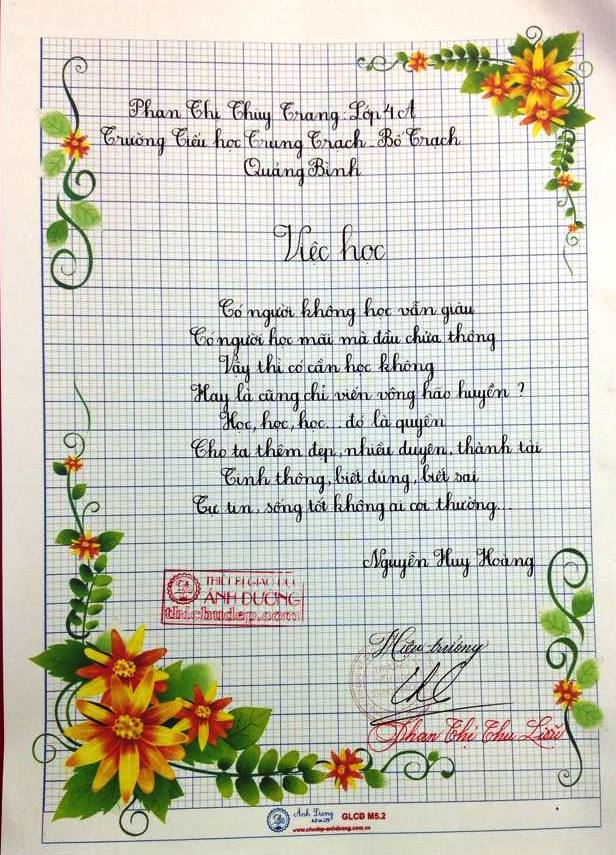 Phan Thị Thùy Trang: Lớp 4A
Trường Tiểu học Trung Trạch - Bố Trạch
Quảng Bình
Việc học
Có người không học vẫn giàu
Có người học mãi mà đầu chửa thông
Vậy thì có cần học không
Hay là cũng chỉ viển vông hão huyền ?
Học, học, học... đó là quyền
Cho ta thêm đẹp, nhiều duyên, thành tài
Tinh thông, biết đúng, biết sai
Tự tin, sống tốt không ai coi thường...
Nguyễn Huy Hoàng
THIẾT BỊ GIÁO DỤC
ÁNH DƯƠNG
thichudep.com
Hiệu trưởng
Phan Thị Thu Liễu
Ánh Dương
GLCĐ M5.2
www.chudep-anhduong.com.vn